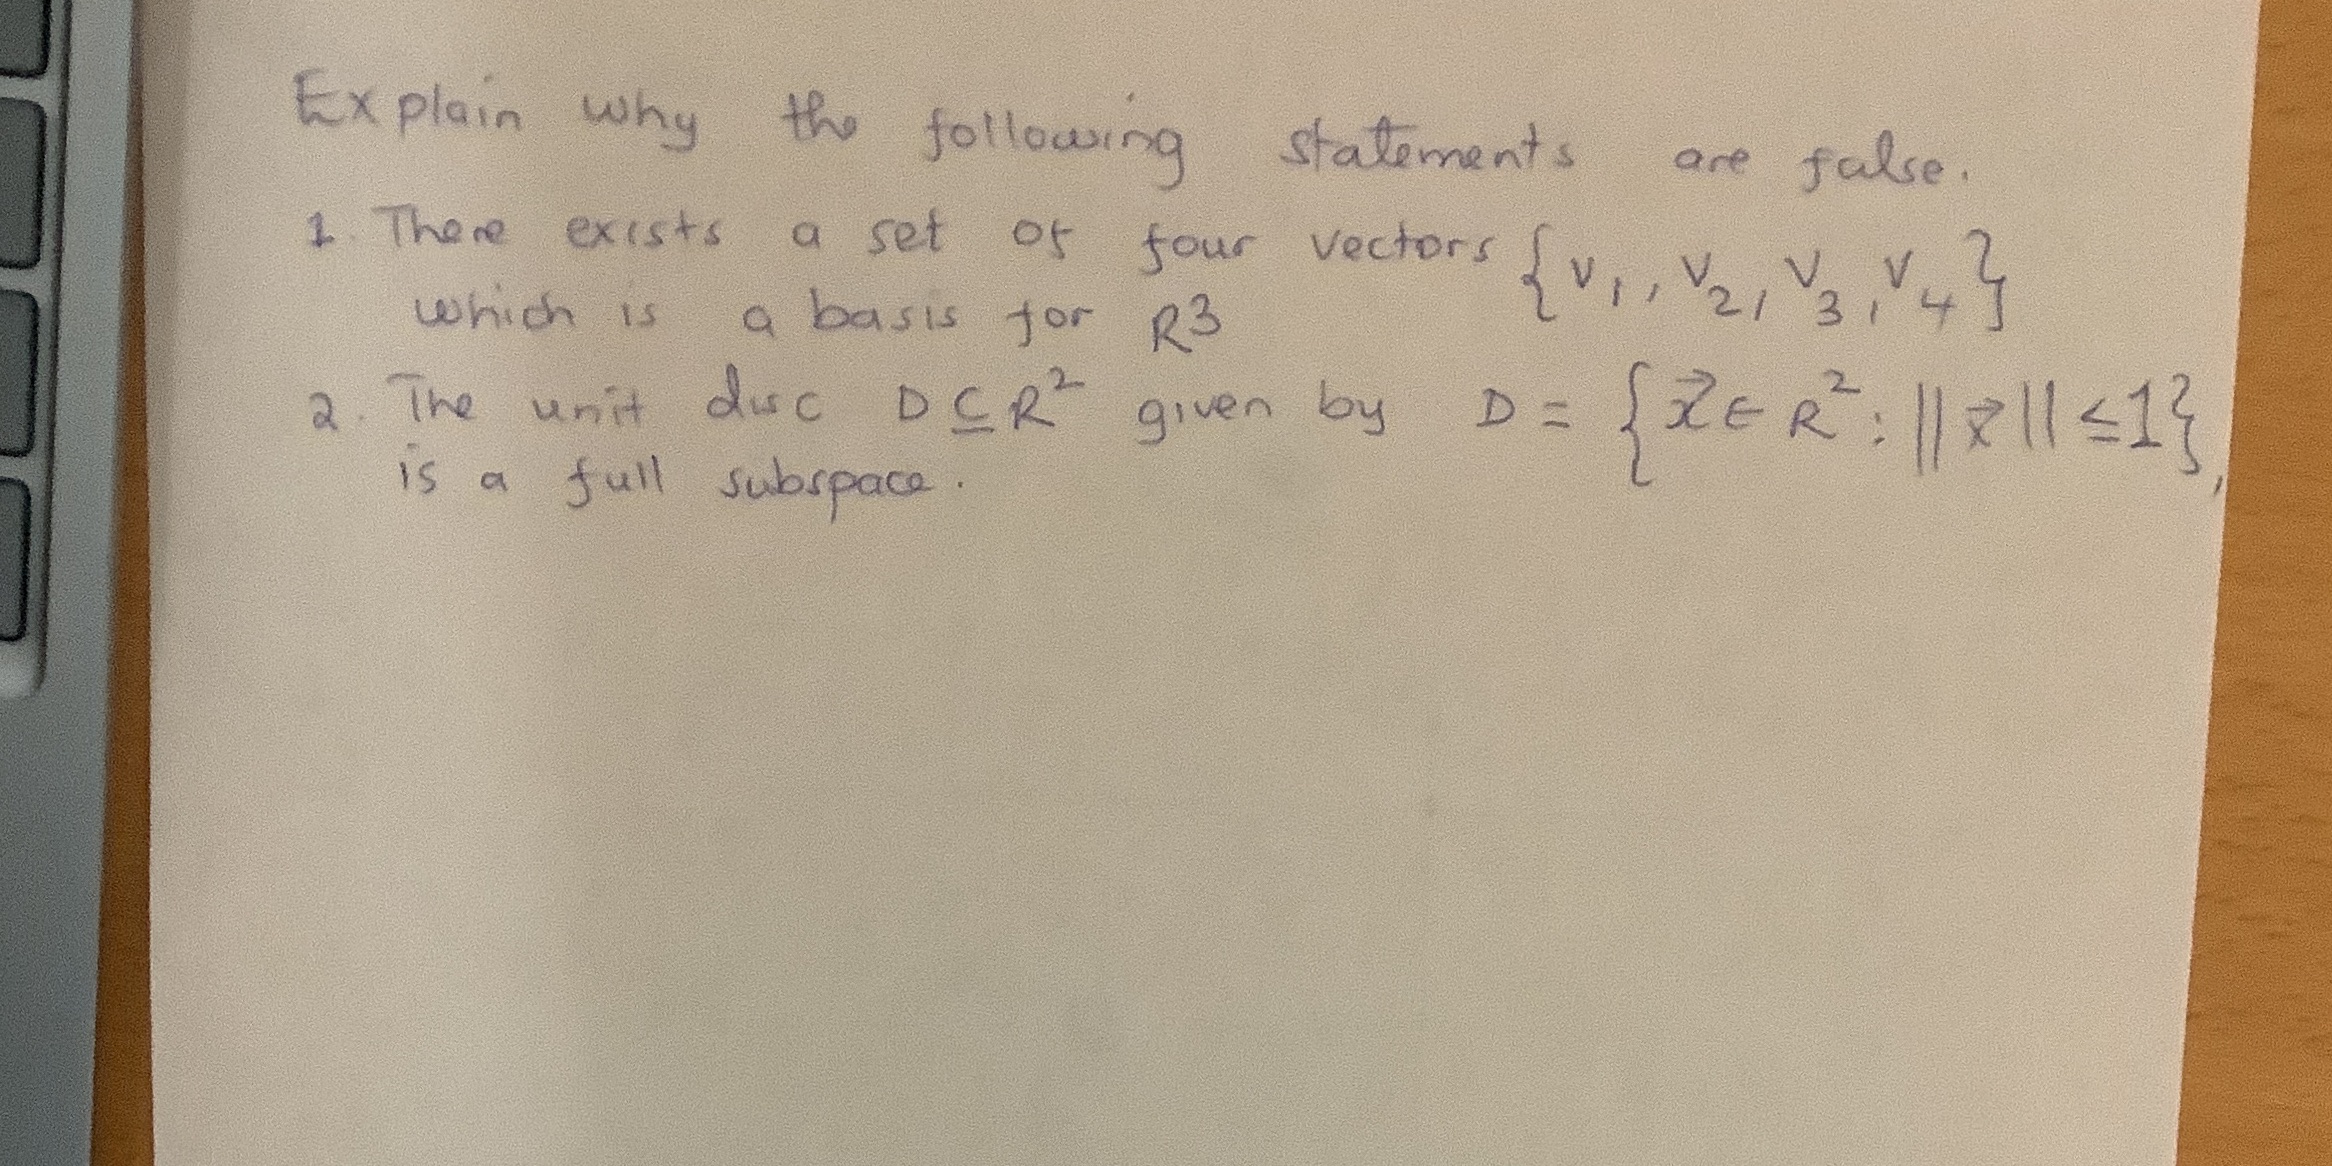 Explain why the following statements are false.
1. There exists a set of four vectors {v₁, v₂, v₃, v₄}
which is a basis for R3
2. The unit disc D ⊆ R² given by D = {x⃗ ∈ R² : ||x⃗|| ≤ 1},
is a full subspace.